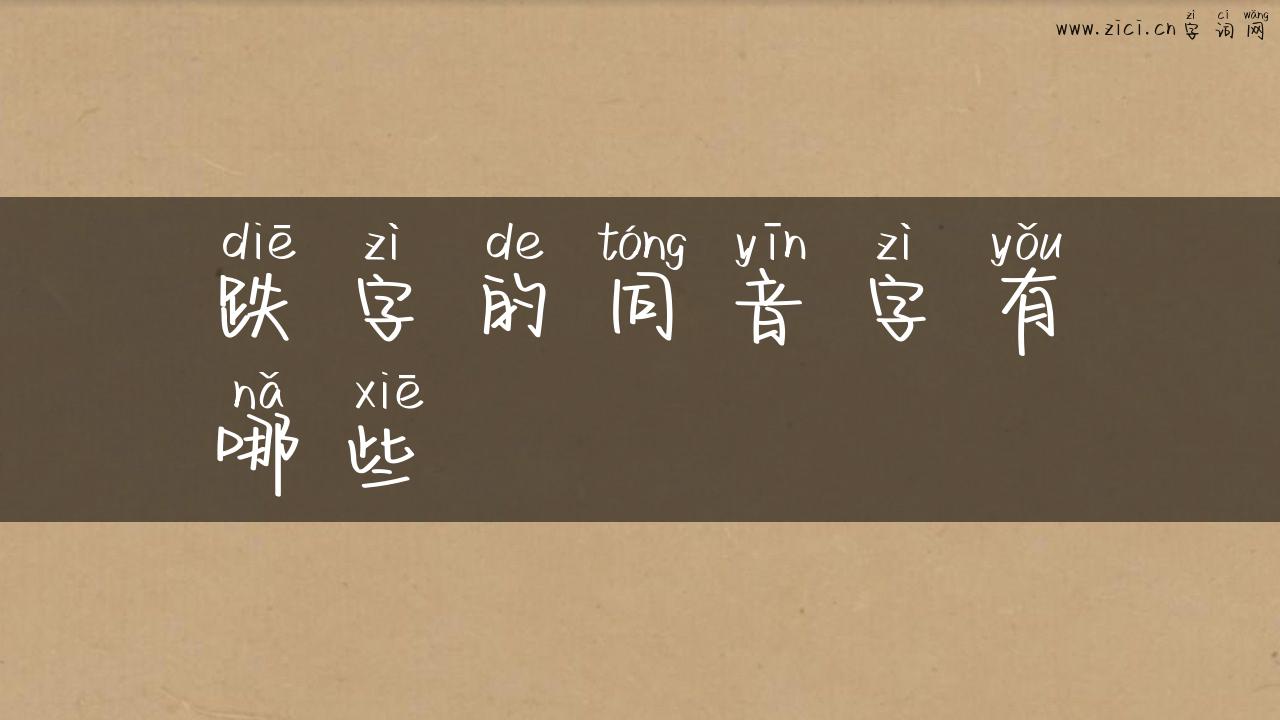 zì cí wǎng
www.zici.cn 字 词 网
diē zì de tóng yīn zì yǒu
跌 字 的 同 音 字 有
nǎ xiē
哪 些